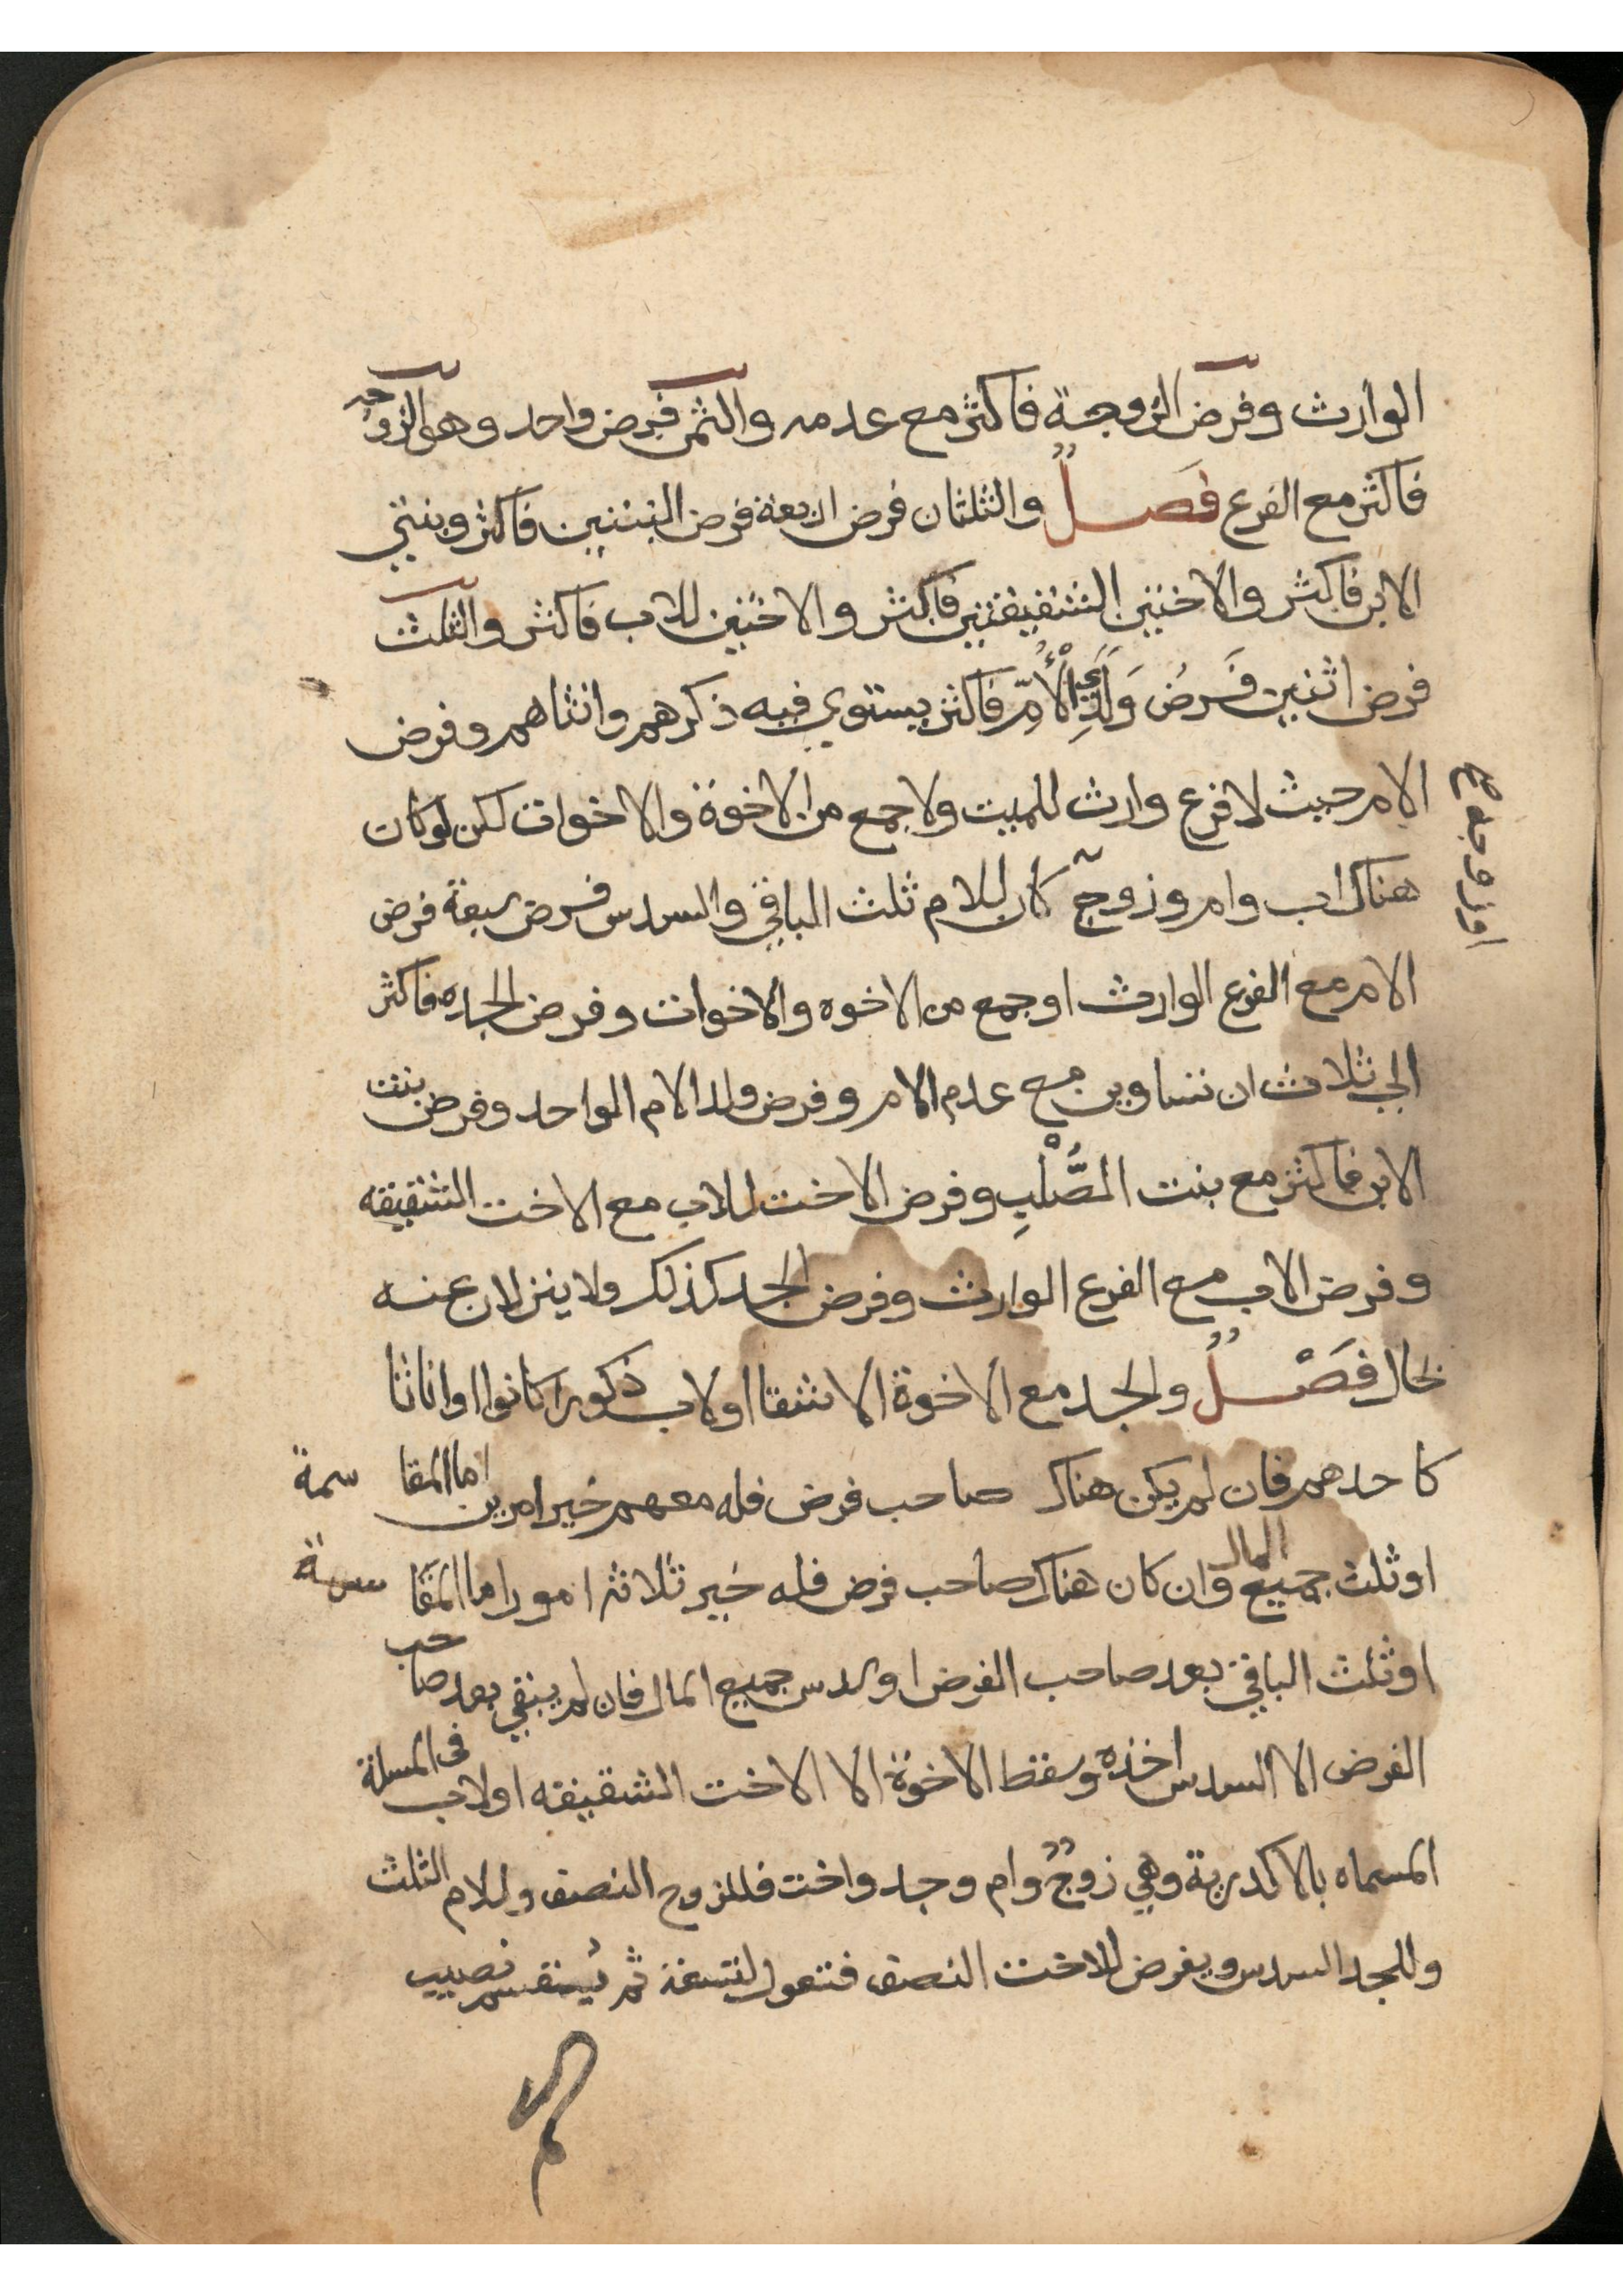 الوارث وفرض الزوجة فاكثر مع عدمه والثمن فرض واحد وهو الزوجه
فاكثر مع الفرع فَصلٌ والثلثان فرض اربعة فرض البنتين فاكثر وبنتي
الابن فاكثر والاختين الشقيقتين فاكثر والاختين للاب فاكثر والثلث
فرض اثنين فَرضُ وَلَدَيِ الْأُمِّ فاكثر يستوي فيه ذكرهم وانثاهم وفرض
الام حيث لا فرع وارث للميت ولا جمع من الاخوة والاخوات لكن لو كان
هناك اب وام وزوج كان للام ثلث الباقي والسدس فرض سبعة فرض
او زوجة صح
الام مع الفرع الوارث او جمع من الاخوه والاخوات وفرض الجده فاكثر
الي ثلاث ان تساوين مع عدم الام وفرض ولد الام الواحد وفرض بنت
الابن فاكثر مع بنت الصُّلْبِ وفرض الاخت للاب مع الاخت الشقيقه
وفرض الاب مع الفرع الوارث وفرض الجد كذلك ولا ينزلان عنه
بحال فَصْلٌ والجد مع الاخوة الاشقا او لاب ذكورا كانوا او اناثا
كاحدهم فان لم يكن هناك صاحب فرض فله معهم خير امرين اما المقاسمة
او ثلث جميع المال وان كان هناك صاحب فرض فله خير ثلاثة امور اما المقاسمة
او ثلث الباقي بعد صاحب الفرض او سدس جميع المال فان لم يبقي بعد صاحب
الفرض الا السدس اخذه وسقط الاخوة الا الاخت الشقيقه او لاب في المسلة
المسماه بالاكدرية وهي زوجٌ وام وجد واخت فللزوج النصف وللام الثلث
وللجد السدس ويفرض للاخت النصف فتعول لتسعة ثم يُقسم نصيب